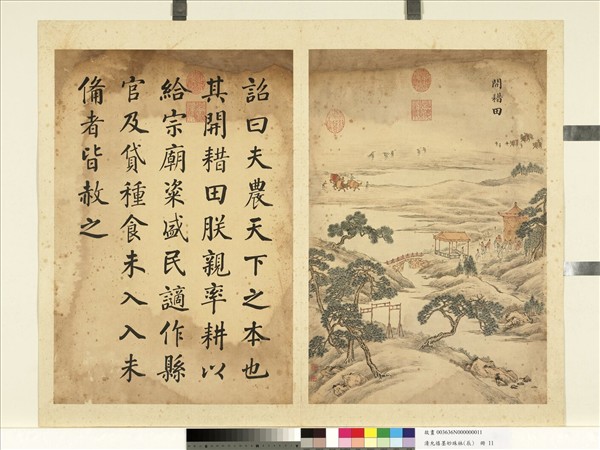 開耤田
詔曰夫農天下之本也
其開耤田朕親率耕以
給宗廟粢盛民謫作縣
官及貸種食未入入未
備者皆赦之
故畫 003636N000000011
冊 11